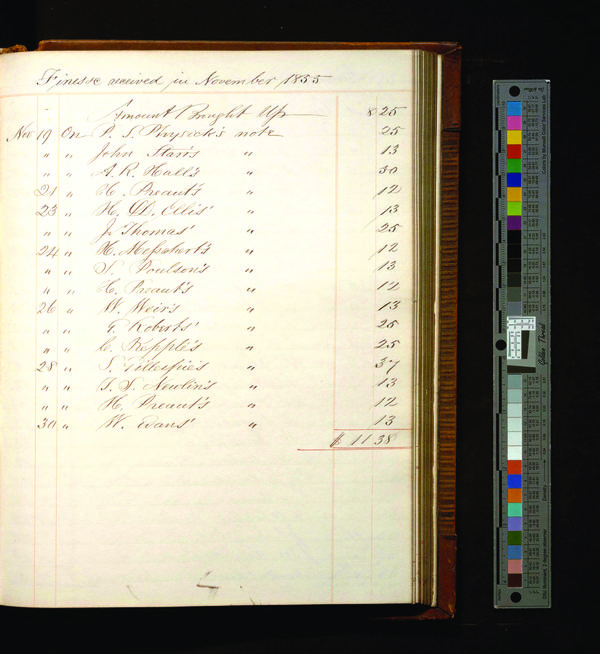 Fines &c received in November 1855
Amount Brought Up 8 25
Nov 19 On P. S. Physick's note 25
" " John Starr's " 13
" " A. R. Hall's " 50
21 " H. Preaut's " 12
23 " H. D. Ellis' " 13
" " J. Thomas' " 25
24 " H. " 12
" " S. Poulson's " 13
" " H. Preaut's " 12
26 " W. Weir's " 13
" " G. Roberts' " 25
" " C. Kepple's " 25
28 " S. Gillespie's " 37
" " T. S. Newlin's " 13
" " H. Preaut's " 12
30 " W. Evans' " 13
$ 11 38
Golden Thread